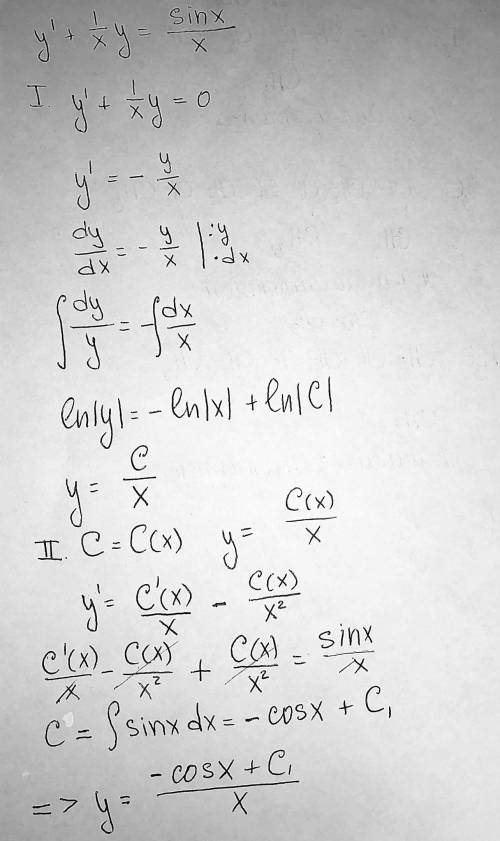 y' + 1/x y = sinx/x
I. y' + 1/x y = 0
y' = - y/x
dy/dx = - y/x |:y ·dx
∫ dy/y = -∫ dx/x
ln|y| = - ln|x| + ln|C|
y = C/x
II. C = C(x) y = C(x)/x
y' = C'(x)/x - C(x)/x²
C'(x)/x - C(x)/x² + C(x)/x² = sinx/x
C = ∫ sinx dx = - cosx + C₁
=> y = (-cosx + C₁)/x